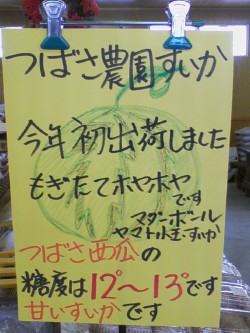 つばさ農園すいか
今年初出荷しました
もぎたてホヤホヤ
です
マダーボール
ヤマト小玉すいか
つばさ西瓜の
糖度は12°〜13°です
甘いすいかです